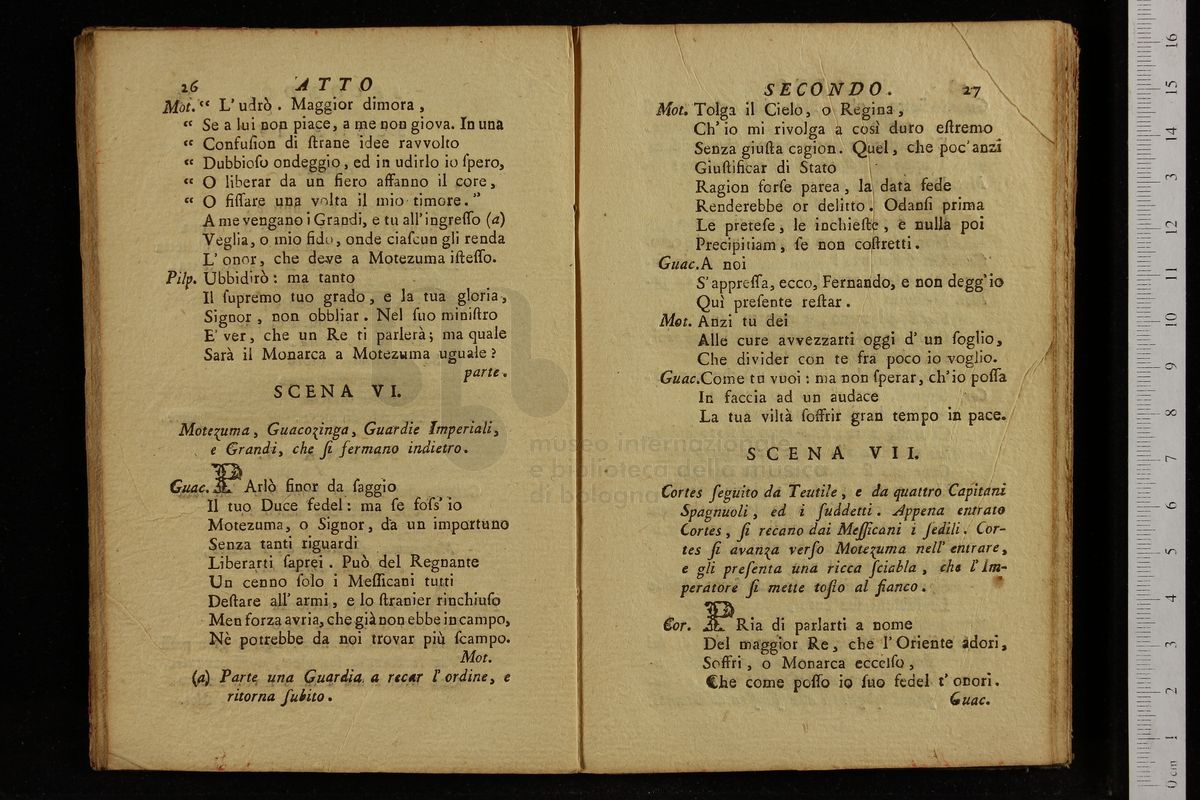 26 ATTO
Mot. “ L' udrò . Maggior dimora ,
“ Se a lui non piace, a me non giova. In una
“ Confuſion di ſtrane idee ravvolto
“ Dubbioſo ondeggio, ed in udirlo io ſpero,
“ O liberar da un fiero affanno il core,
“ O fiſſare una volta il mio timore. ”
A me vengano i Grandi, e tu all' ingreſſo (a)
Veglia, o mio fido, onde ciaſcun gli renda
L' onor, che deve a Motezuma iſteſſo.
Pilp. Ubbidirò : ma tanto
Il ſupremo tuo grado, e la tua gloria,
Signor , non obbliar. Nel ſuo miniſtro
E' ver, che un Re ti parlerà; ma quale
Sarà il Monarca a Motezuma uguale?
parte.
SCENA VI.
Motezuma, Guacozinga, Guardie Imperiali,
e Grandi, che ſi fermano indietro.
Guac. PArlò finor da ſaggio
Il tuo Duce fedel: ma ſe foſs' io
Motezuma, o Signor, da un importuno
Senza tanti riguardi
Liberarti ſaprei. Può del Regnante
Un cenno ſolo i Meſſicani tutti
Deſtare all' armi, e lo ſtranier rinchiuſo
Men forza avria, che già non ebbe in campo,
Nè potrebbe da noi trovar più ſcampo.
Mot.
(a) Parte una Guardia a recar l' ordine, e
ritorna ſubito.
SECONDO. 27
Mot. Tolga il Cielo, o Regina,
Ch' io mi rivolga a così duro eſtremo
Senza giuſta cagion. Quel, che poc' anzi
Giuſtificar di Stato
Ragion forſe parea, la data fede
Renderebbe or delitto. Odanſi prima
Le preteſe, le inchieſte, e nulla poi
Precipitiam, ſe non coſtretti.
Guac. A noi
S' appreſſa, ecco, Fernando, e non degg' io
Quì preſente reſtar.
Mot. Anzi tu dei
Alle cure avvezzarti oggi d' un ſoglio,
Che divider con te fra poco io voglio.
Guac. Come tu vuoi : ma non ſperar, ch' io poſſa
In faccia ad un audace
La tua viltà ſoffrir gran tempo in pace.
SCENA VII.
Cortes ſeguito da Teutile, e da quattro Capitani
Spagnuoli, ed i ſuddetti. Appena entrato
Cortes, ſi recano dai Meſſicani i ſedili. Cor-
tes ſi avanza verſo Motezuma nell' entrare,
e gli preſenta una ricca ſciabla, che l' Im-
peratore ſi mette toſto al fianco.
Cor. PRia di parlarti a nome
Del maggior Re, che l' Oriente adori,
Soffri, o Monarca eccelſo,
Che come poſſo io ſuo fedel t' onori.
Guac.
museo internazionale
e biblioteca della musica
di bologna
0 cm 1 2 3 4 5 6 7 8 9 10 11 12 13 14 15 16